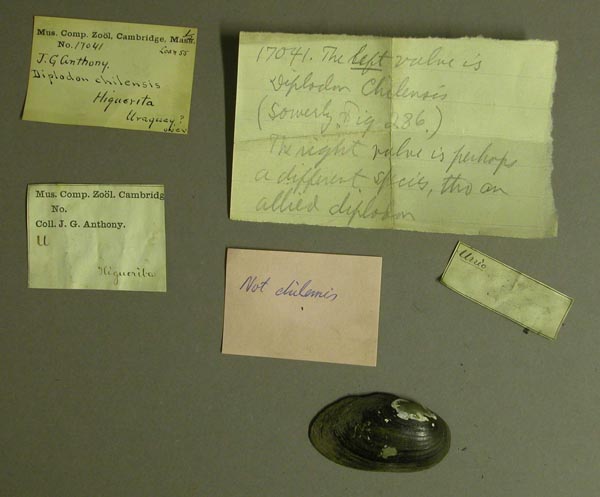 Mus. Comp. Zoöl. Cambridge, Mass.
No. 17041
Loan 55
J. G. Anthony.
Diplodon chilensis
Higuerita
Uraguay?
17041. The left valve is
Diplodon Chilensis
(Sowerby, Fig 286.)
The right valve is perhaps
a different species, tho an
allied diplodon
Mus. Comp. Zoöl. Cambridg
No.
Coll. J. G. Anthony.
U
Higuerita
Not chilensis
Unio